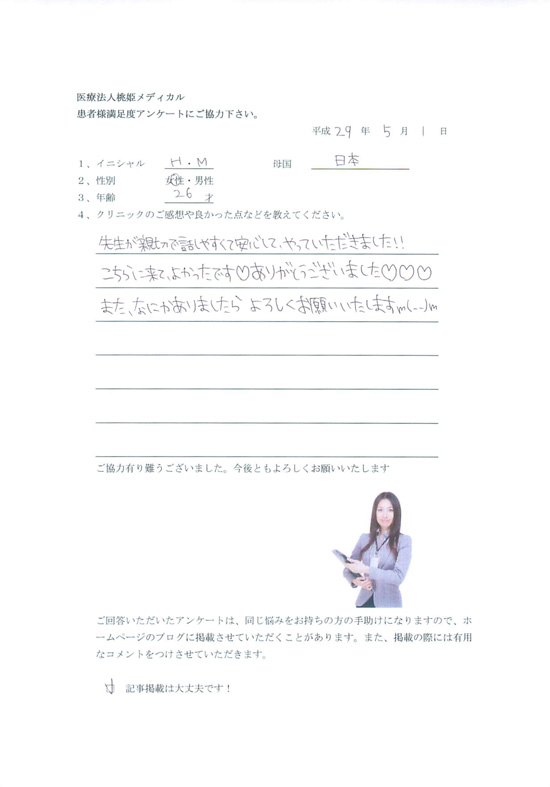 医療法人桃姫メディカル
患者様満足度アンケートにご協力下さい。
平成 29 年 5 月 1 日
1、イニシャル H・M 母国 日本
2、性別 女性・男性
3、年齢 26 才
4、クリニックのご感想や良かった点などを教えてください。
先生が親切で話しやすくて安心して、やっていただきました!!
こちらに来て、よかったです♡ありがとうございました♡♡♡
また、なにかありましたら よろしくお願いいたしますm(--)m
ご協力有り難うございました。今後ともよろしくお願いいたします
ご回答いただいたアンケートは、同じ悩みをお持ちの方の手助けになりますので、ホ
ームページのブログに掲載させていただくことがあります。また、掲載の際には有用
なコメントをつけさせていただきます。
記事掲載は大丈夫です！